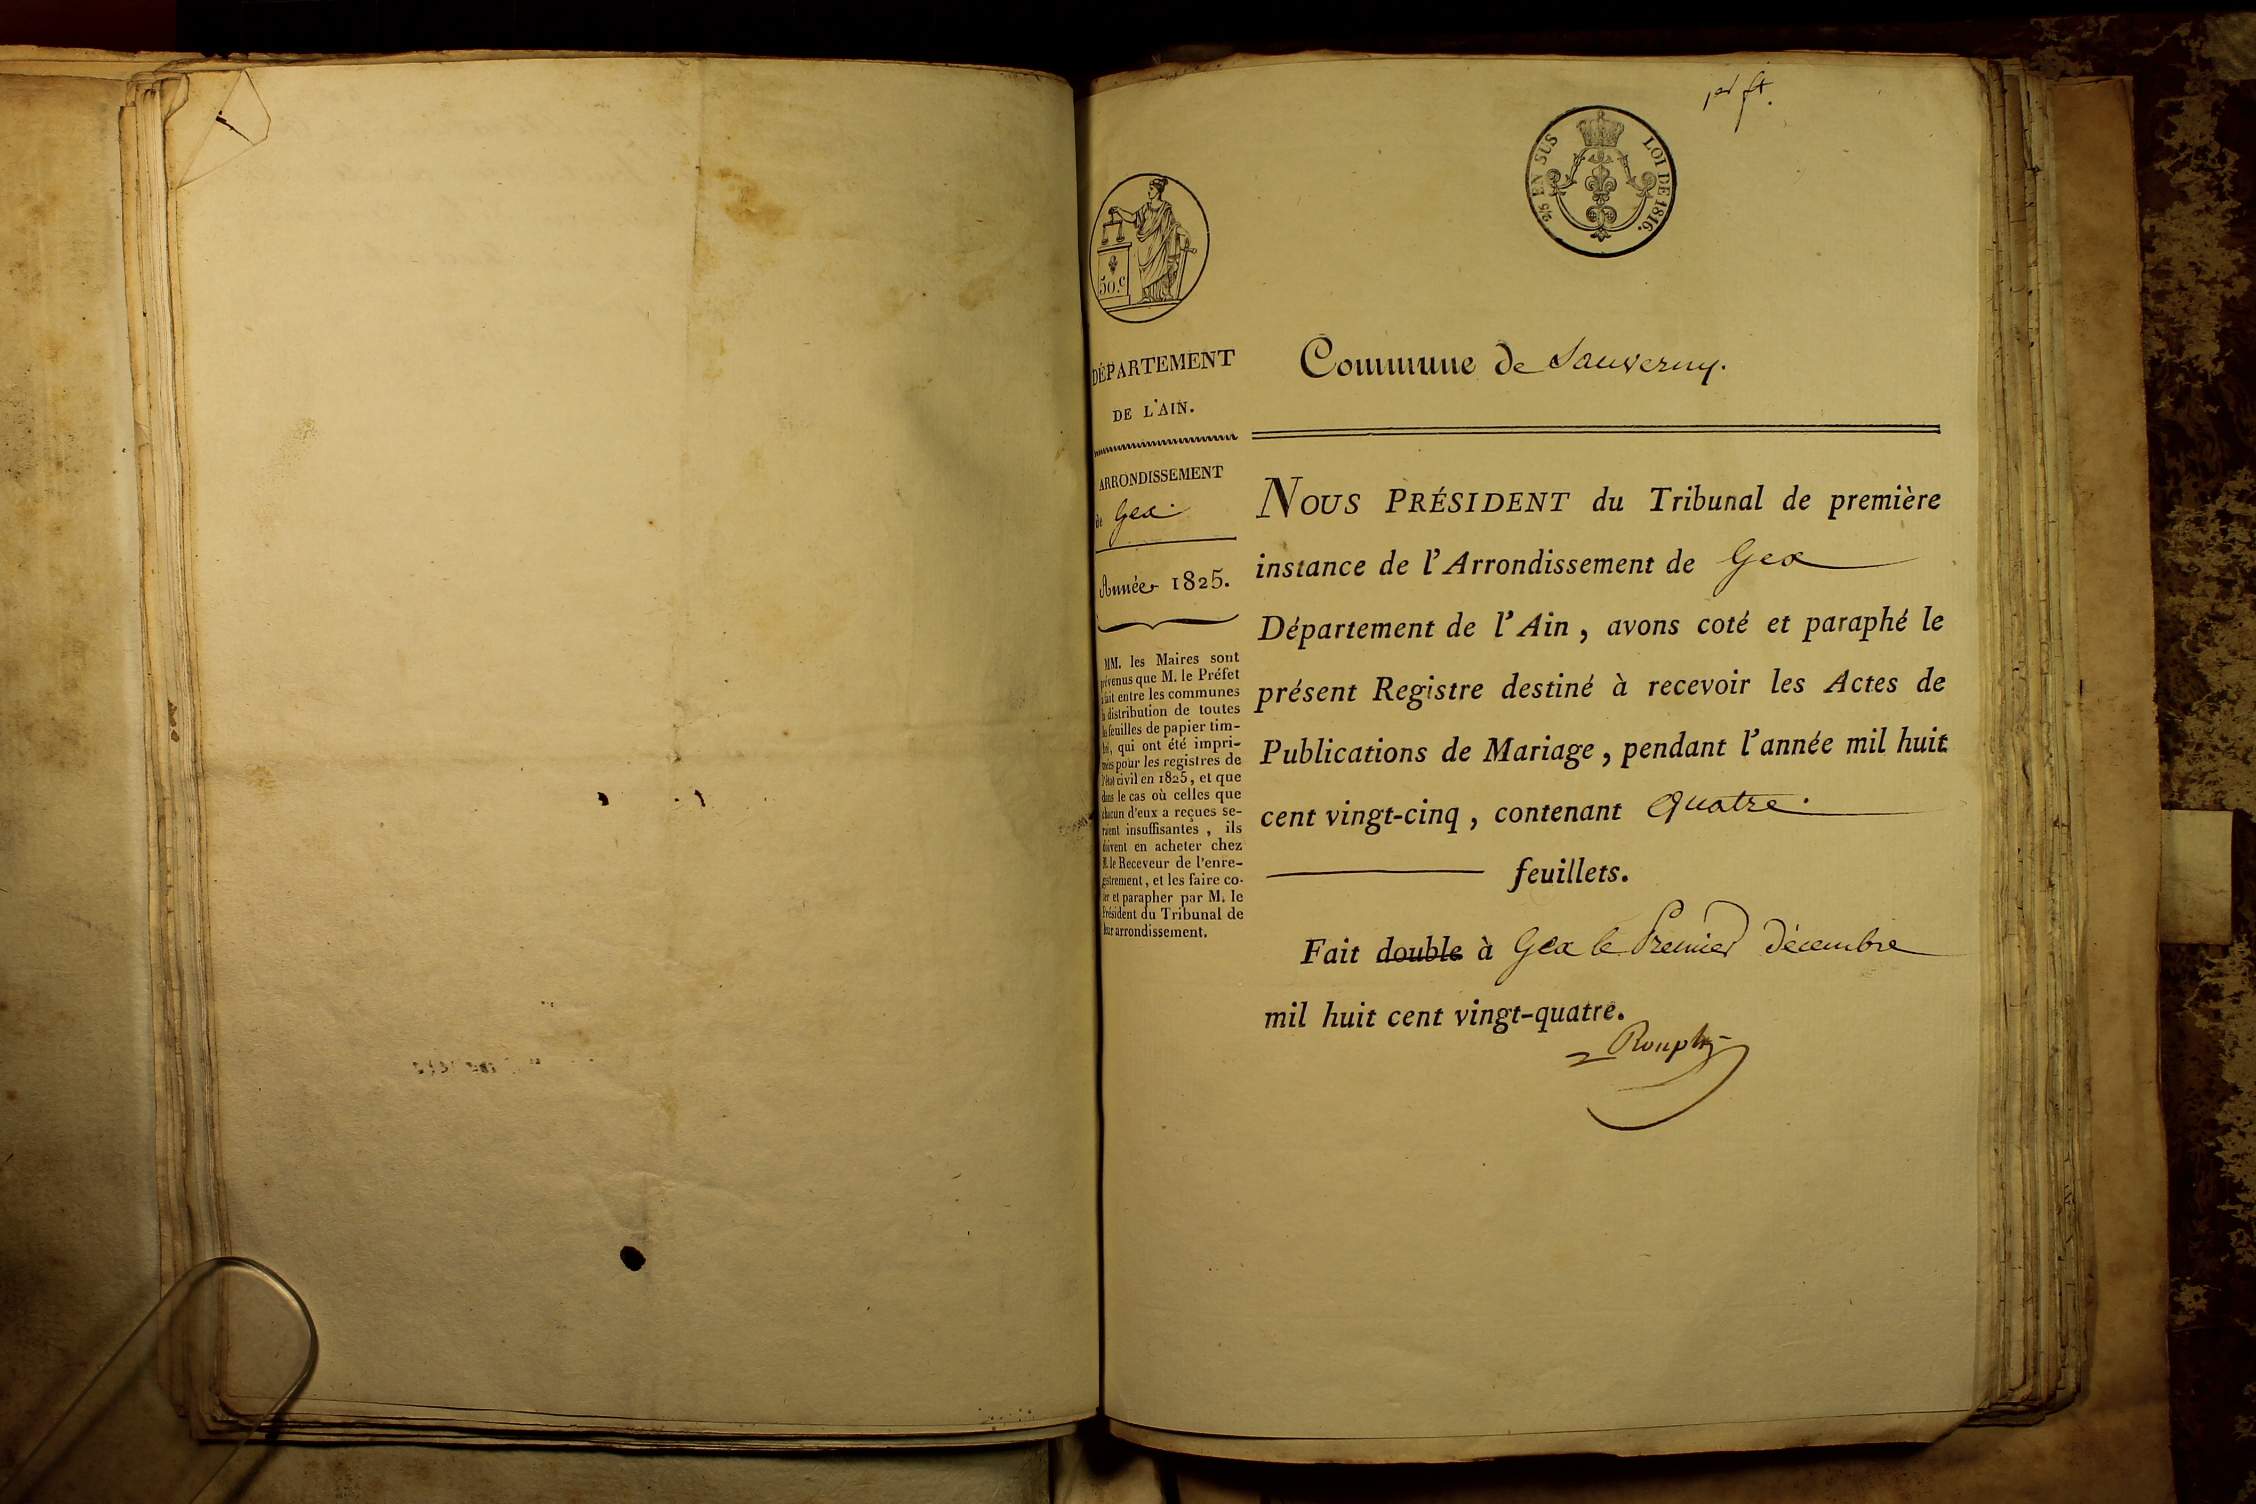 1er ft.
2/5 EN SUS LOI DE 1816.
50.c
DÉPARTEMENT
DE L'AIN.
ARRONDISSEMENT
de Gex.
Année 1825.
MM. les Maires sont
prévenus que M. le Préfet
a fait entre les communes
la distribution de toutes
les feuilles de papier tim-
bré, qui ont été impri-
més pour les registres de
l'état civil en 1825, et que
dans le cas où celles que
chacun d'eux a reçues se-
raient insuffisantes, ils
doivent en acheter chez
M. le Receveur de l'enre-
gistrement, et les faire co-
ter et parapher par M. le
Président du Tribunal de
leur arrondissement.
Commune de Sauverny.
NOUS PRÉSIDENT du Tribunal de première
instance de l'Arrondissement de Gex
Département de l'Ain, avons coté et paraphé le
présent Registre destiné à recevoir les Actes de
Publications de Mariage, pendant l'année mil huit
cent vingt-cinq, contenant quatre.
feuillets.
Fait double à Gex le Premier décembre
mil huit cent vingt-quatre.